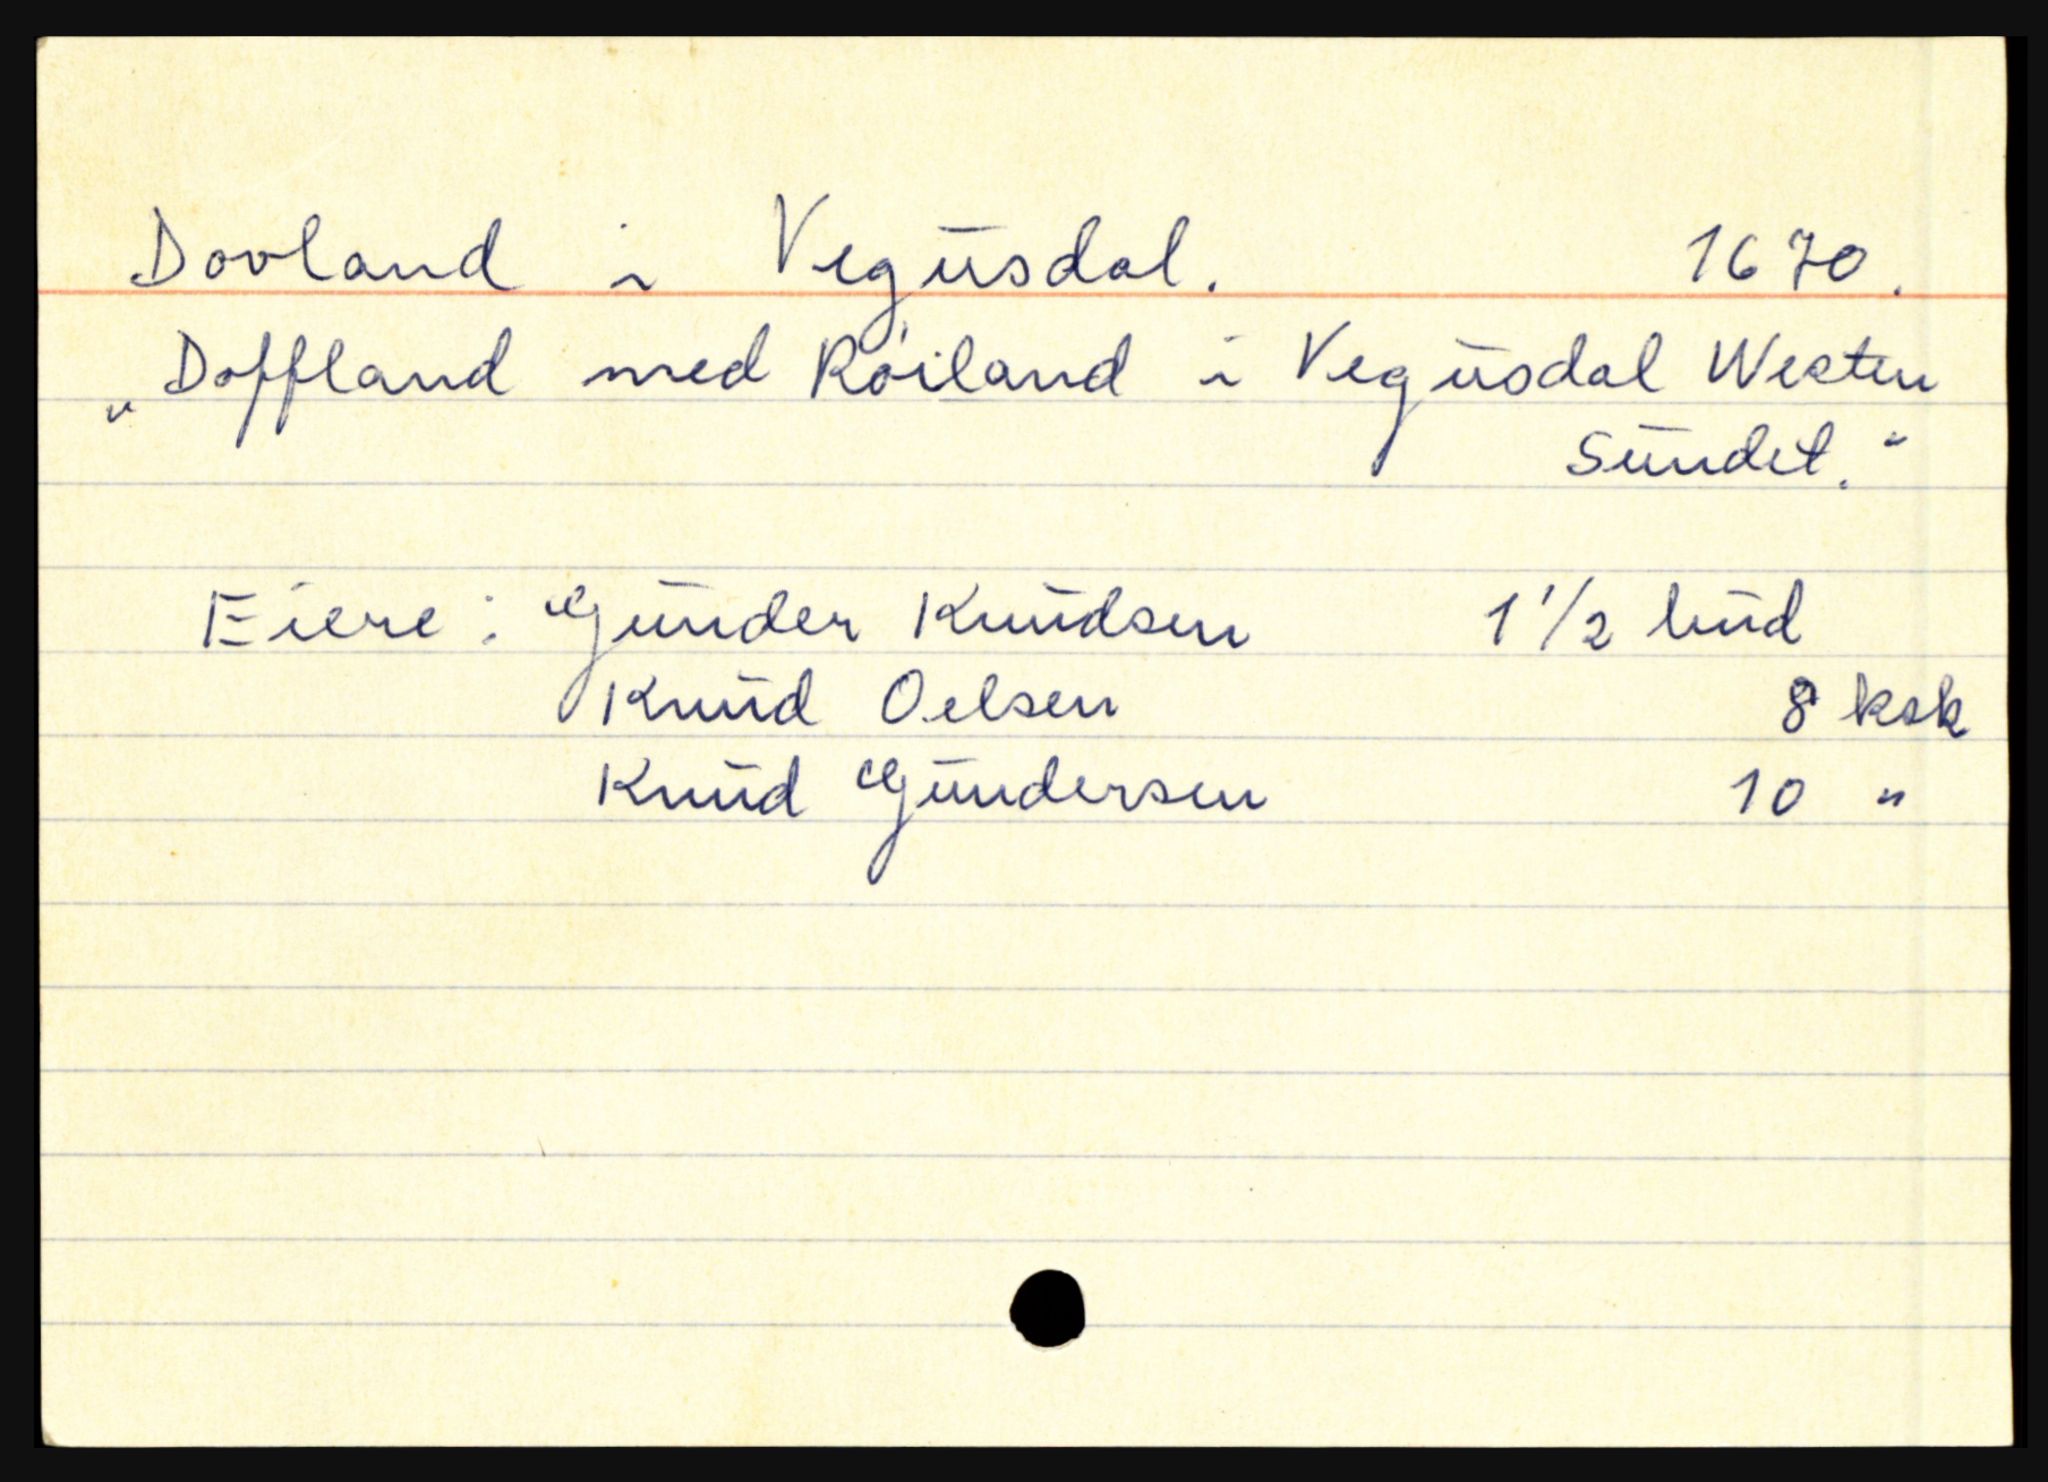 Dovland i Vegusdal. 1670.
"Doffland med Röiland i Vegusdal Westen
Sundet."
Eiere: Gunder Knudsen 1 1/2 hud
Knud Oelsen 8 ksk
Knud Gundersen 10 "